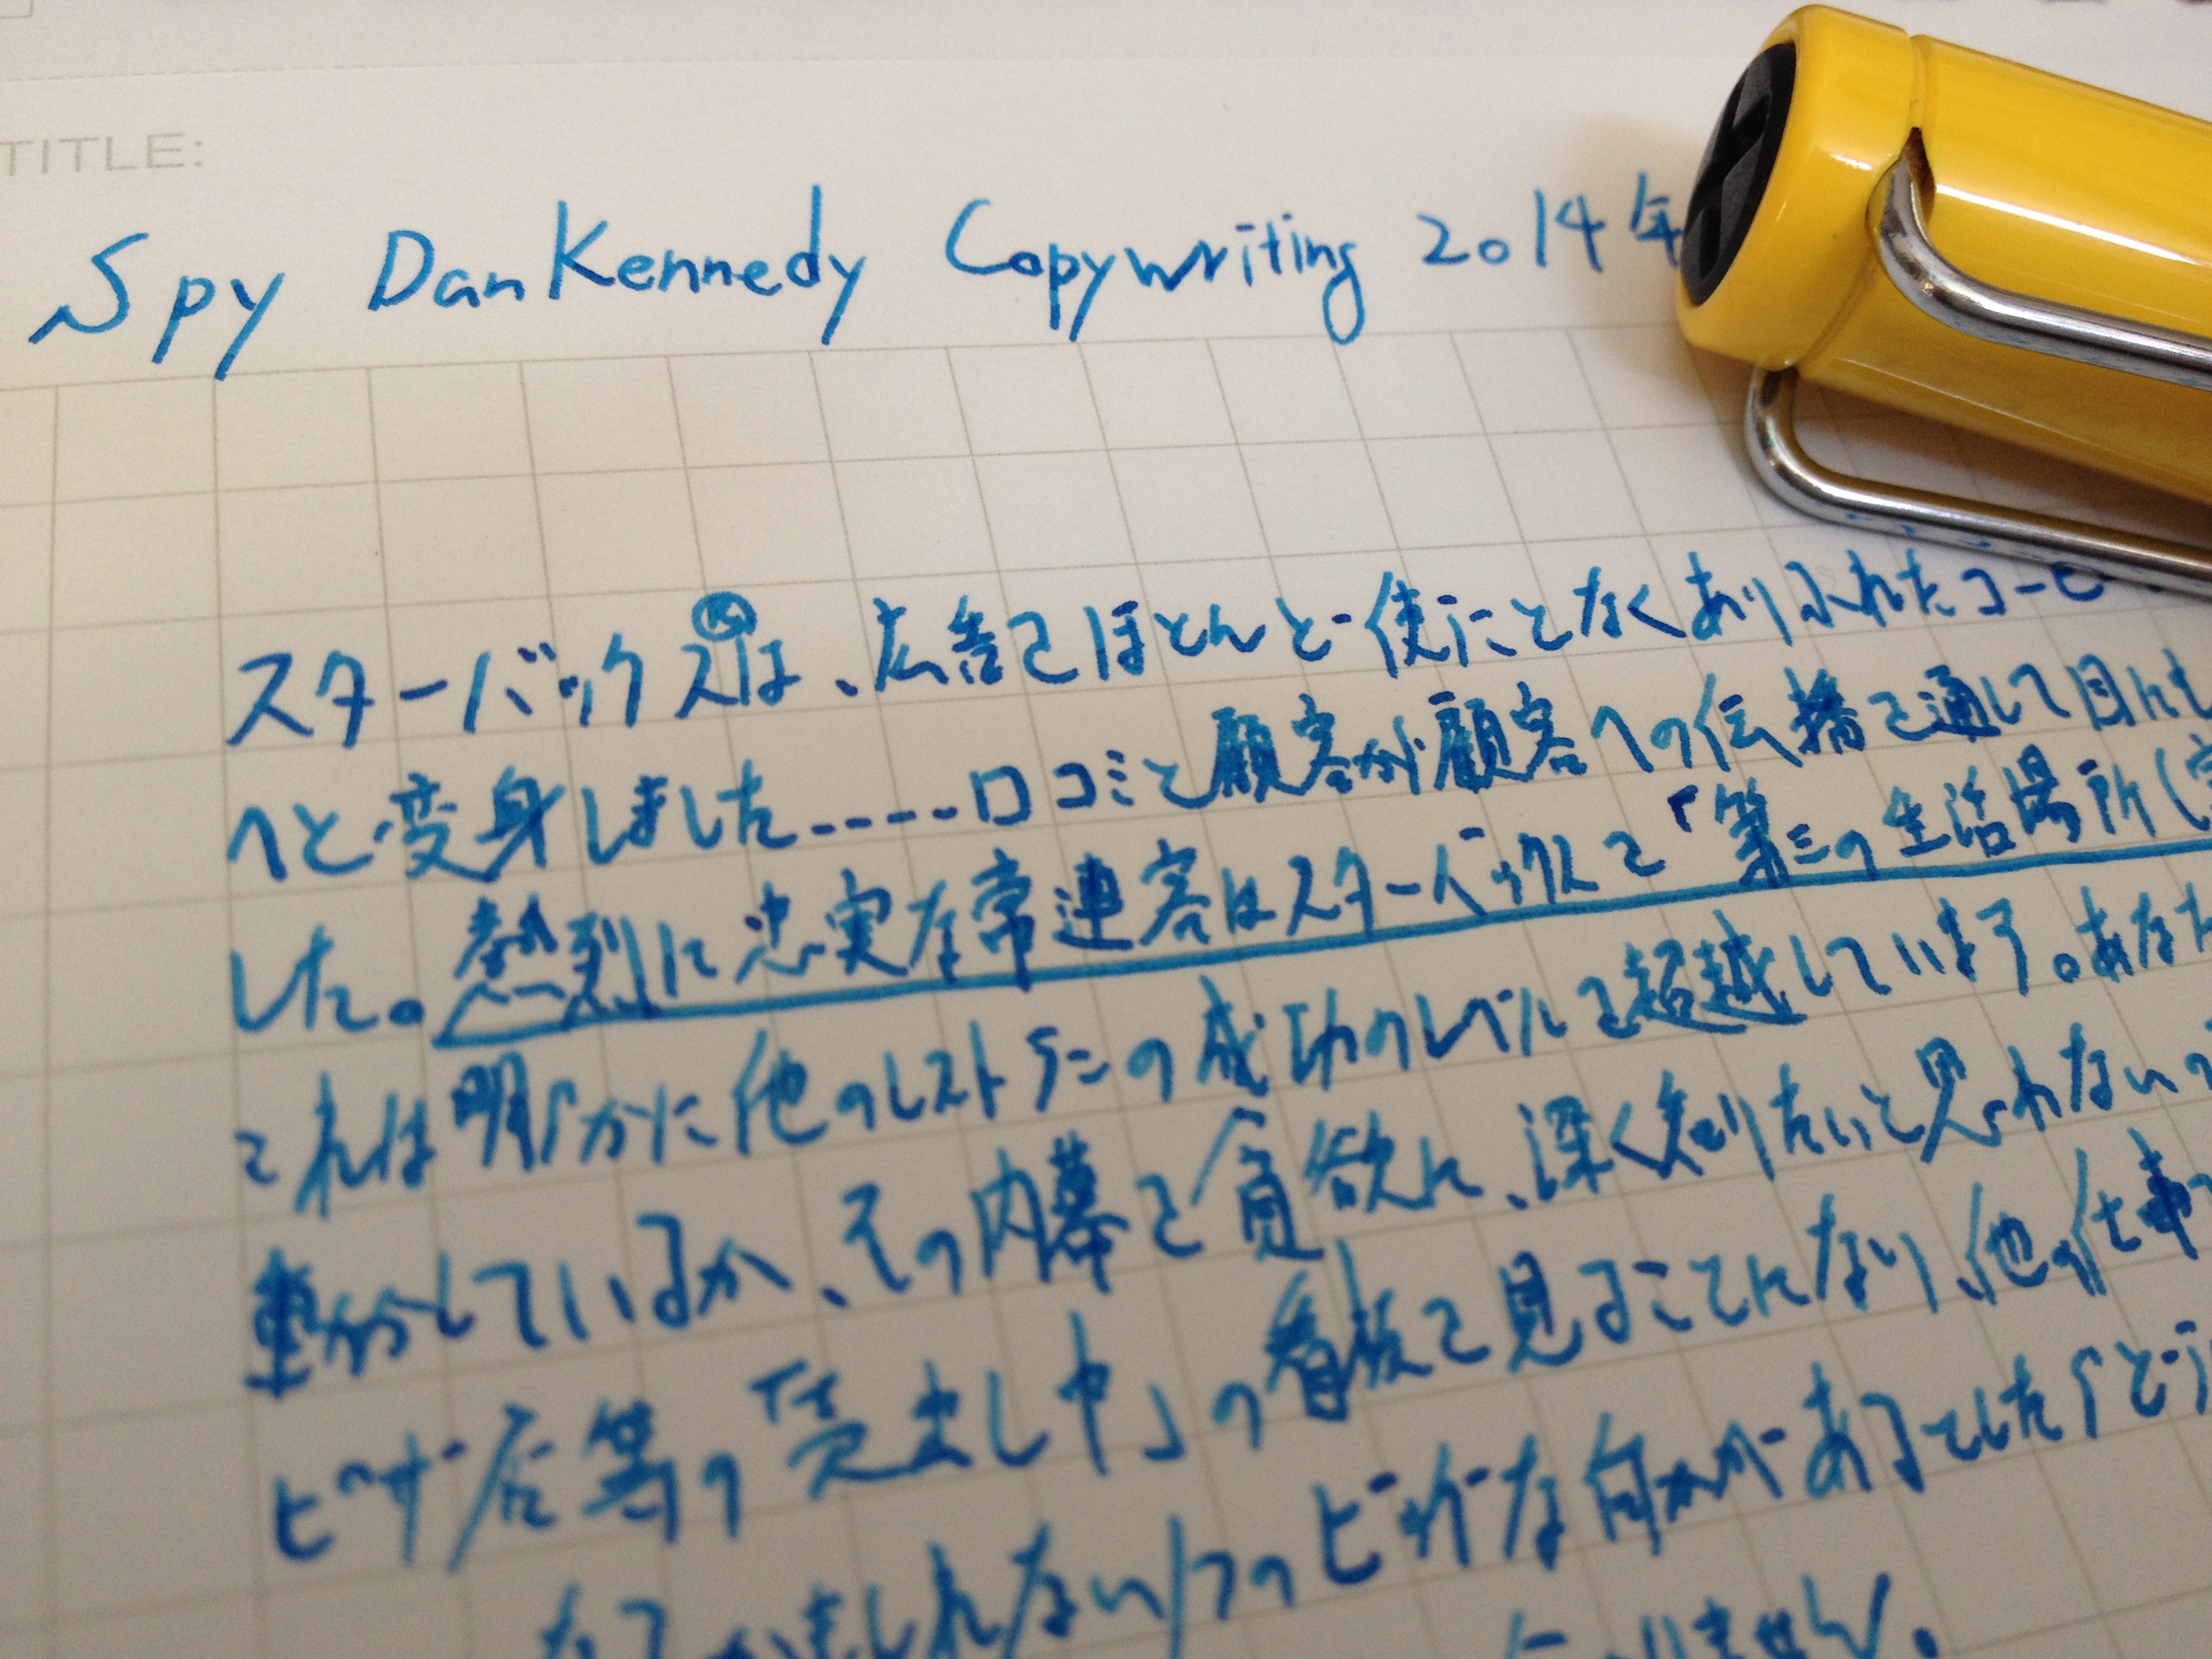 TITLE:
Spy Dan Kennedy Copywriting 2014年
スターバックスⓇは、広告をほとんど使うことなくありふれたコーヒ
へと変身しました.....口コミと顧客が顧客への伝播を通して目にも
した。熱烈に忠実な常連客はスターバックスを「第三の生活場所(
これは明らかに他のレストランの成功のレベルを超越しています。あなた
動かしているか、その内幕を貪欲に、深く知りたいと思われない
ピザ店等の「売出し中」の看板を見ることになり、他の仕事
なるかもしれない1つのビッグな何かがあるでしたらと
ありません。